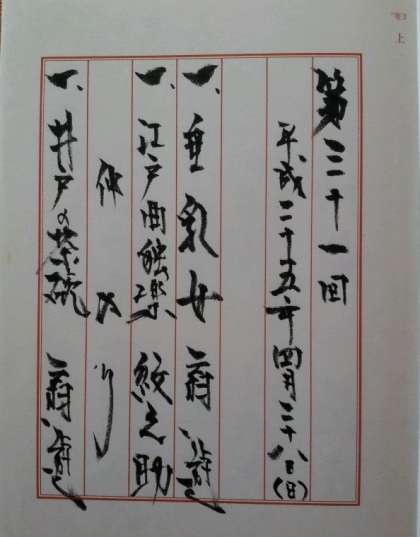 上
第三十一回
平成二十五年四月二十八日(日)
一、垂乳女 扇遊
一、江戸曲独楽 紋之助
仲入り
一、井戸の茶碗 扇遊